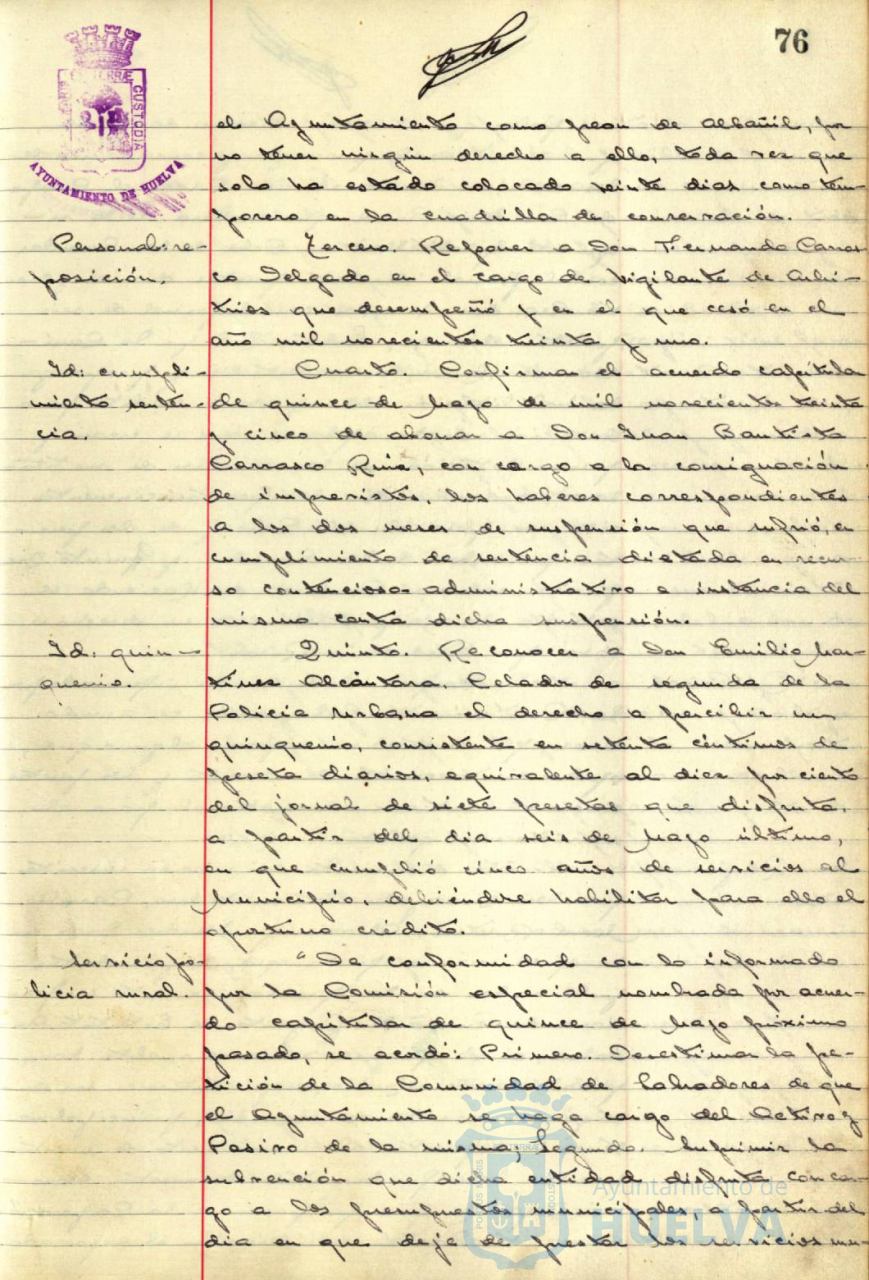 76
PORTUS MARIS ET TERRÆ CUSTODIA
AYUNTAMIENTO DE HUELVA
el Ayuntamiento como peon de Albañil, por
no tener ningún derecho a ello, toda vez que
solo ha estado colocado veinte dias como tem-
porero en la cuadrilla de conservación.
Personal: re-
posición.
Tercero. Reponer a Don Fernando Carras-
co Delgado en el cargo de Vigilante de Arbi-
trios que desempeñó y en el que cesó en el
año mil novecientos treinta y uno.
Id: cumpli-
miento senten-
cia.
Cuarto. Confirmar el acuerdo capitular
de quince de Mayo de mil novecientos treinta
y cinco de abonar a Don Juan Bautista
Carrasco, con cargo a la consignación
de imprevistos, los haberes correspondientes
a los dos meses de suspensión que sufrió, en
cumplimiento de sentencia dictada en recur-
so contencioso-administrativo a instancia del
mismo contra dicha suspensión.
Id: quin-
quenio.
Quinto. Reconocer a Don Emilio Mar-
tínez Alcántara, Celador de segunda de la
Policia Urbana el derecho a percibir un
quinquenio, consistente en setenta céntimos de
peseta diarios, equivalente al diez por ciento
del jornal de siete pesetas que disfruta,
a partir del dia seis de Mayo último,
en que cumplió cinco años de servicios al
Municipio, debiéndose habilitar para ello el
oportuno crédito.
Servicio po-
licia rural.
"De conformidad con lo informado
por la Comisión especial nombrada por acuer-
do capitular de quince de Mayo próximo
pasado, se acordó: Primero. Desestimar la pe-
tición de la Comunidad de Labradores de que
el Ayuntamiento se haga cargo del Activo y
Pasivo de la misma; Segundo. Suprimir la
subvención que dicha entidad disfruta con car-
go a los presupuestos municipales, a partir del
dia en que deje de prestar los servicios mu-
Ayuntamiento de
HUELVA